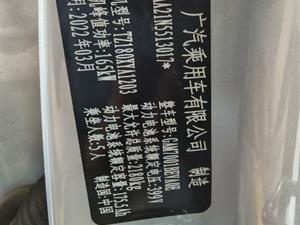 广汽乘用车有限公司 制造
AA21N5513017*
整车型号:
动力电池系统额定电压:399V
TZ180XYA1203
最大允许总质量:2180kg
机峰值功率:165kW
动力电池系统额定容量:175.5Ah
月:2022年03月
乘坐人数:5人
制造国:中国